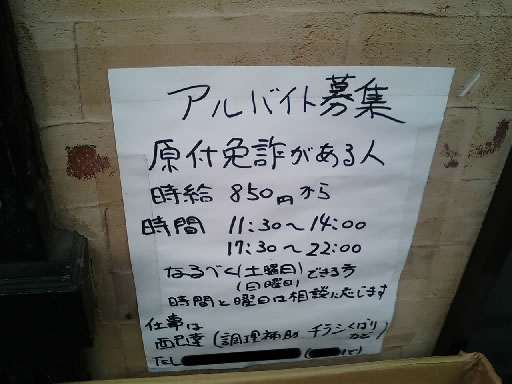 アルバイト募集
原付免許がある人
時給 850円から
時間 11:30～14:00
17:30～22:00
なるべく(土曜日)できる方
(日曜日)
時間と曜日は相談いたします
仕事は
配達(調理補助 チラシくばりなど)
TEL